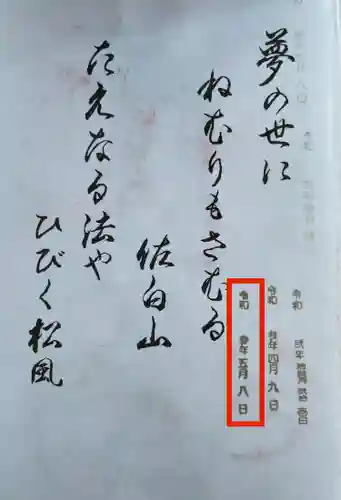 夢の世に
ねむりもさむる
佐白山
たえなる法や
ひびく松風
令和
令和 参年四月九日
令和 参年五月八日